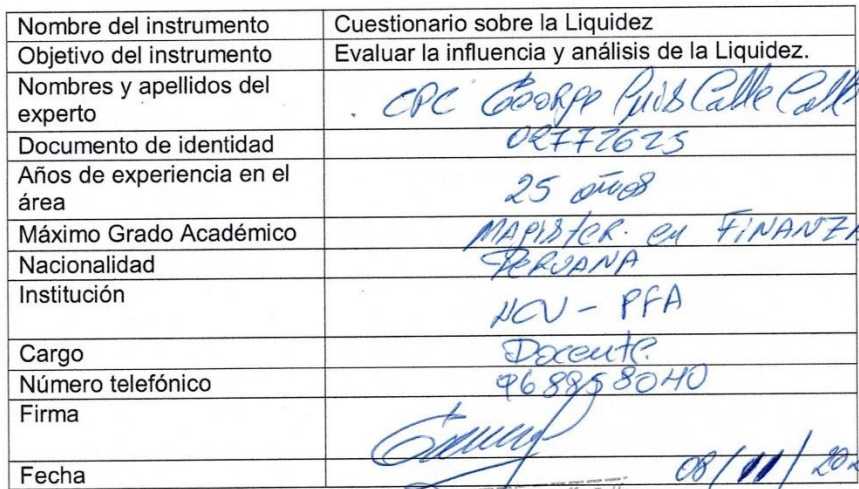 Nombre del instrumento Cuestionario sobre la Liquidez
Objetivo del instrumento Evaluar la influencia y análisis de la Liquidez.
Nombres y apellidos del
experto CPC George Luis Calle
Documento de identidad 02772625
Años de experiencia en el
área 25 años
Máximo Grado Académico Magister en FINANZA
Nacionalidad PERUANA
Institución UCV - PFA
Cargo Docente.
Número telefónico 968958040
Firma
Fecha 08/11/202